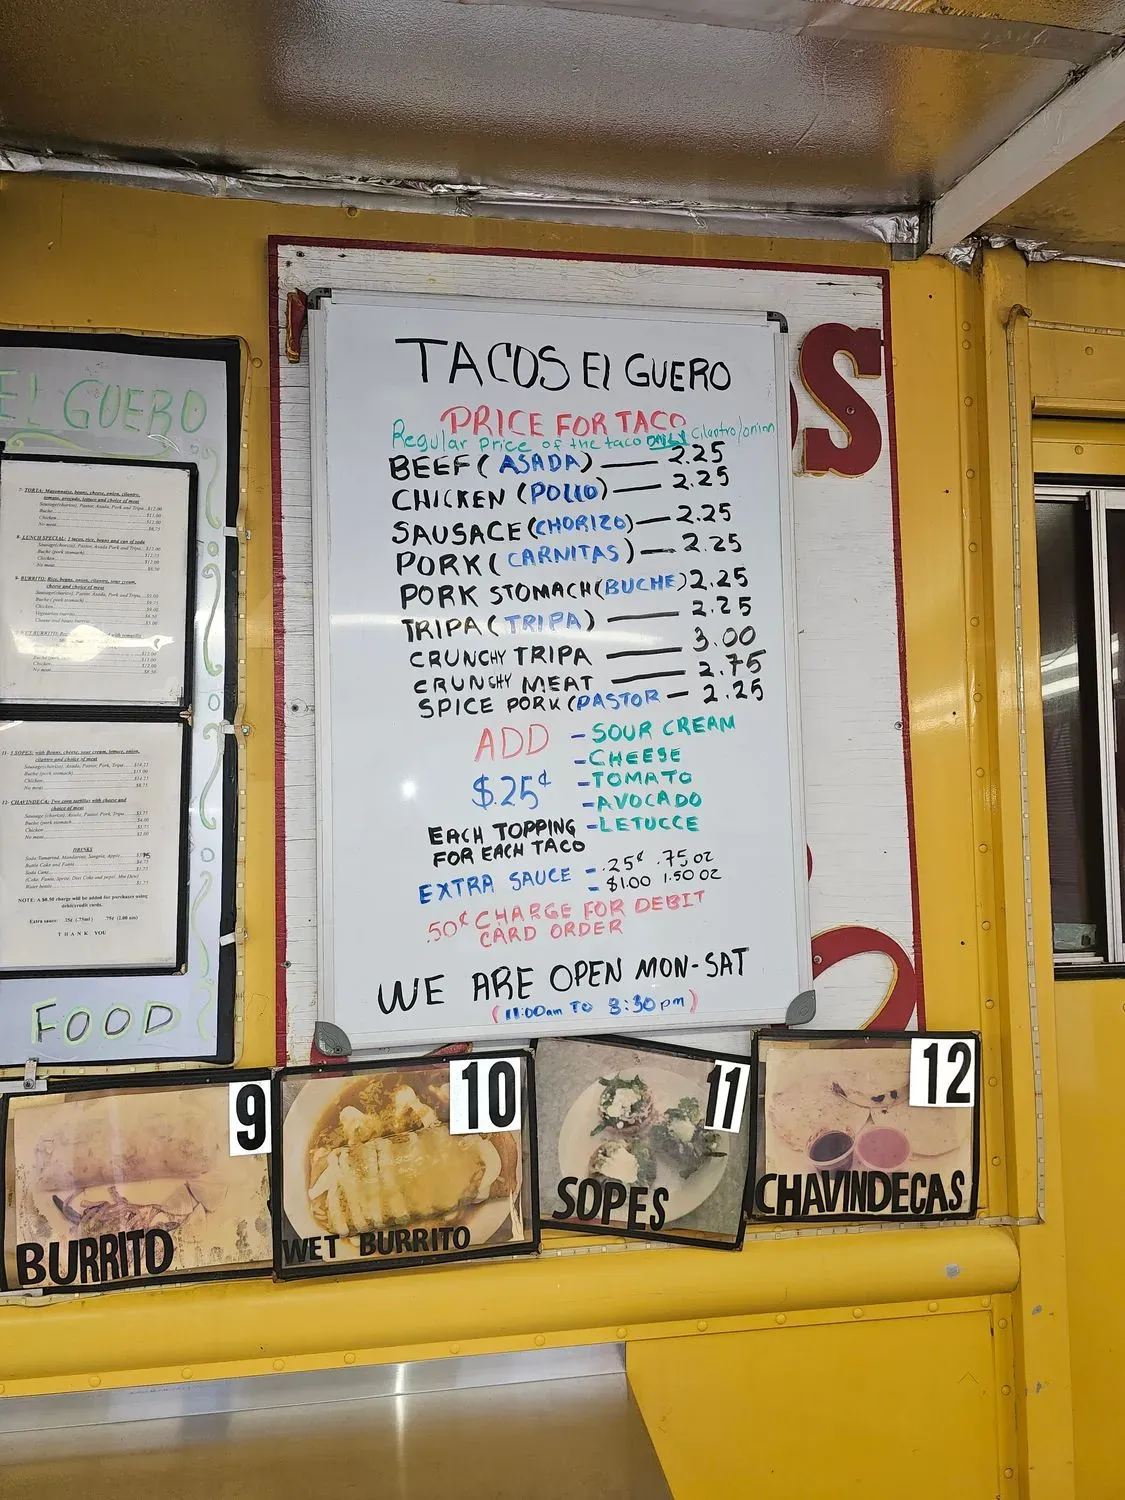 EL GUERO
7- TORTA: Mayonnaise, beans, cheese, onion, cilantro,
tomato, avocado, lettuce and choice of meat
Sausage(chorizo), Pastor, Asada, Pork and Tripa...$12.00
Buche (pork stomach)
Chicken
No meat
8- LUNCH SPECIAL: 3 tacos, rice, beans and can of soda
Sausage(chorizo), Pastor, Asada Pork and Tripa
Buche (pork stomach)
Chicken
No meat
9- BURRITO: Rice, beans, onion, cilantro, sour cream,
cheese and choice of meat
Sausage(chorizo), Pastor, Asada, Pork and Tripa
Buche (pork stomach)
Chicken
Vegetarian burrito
Cheese and beans burrito
WET BURRITO:
No meat
11- 3 SOPES: with Beans, cheese, sour cream, lettuce, onion,
cilantro and choice of meat
Sausage(chorizo), Asada, Pastor, Pork, Tripa
Buche (pork stomach)
Chicken
No meat
12- CHAVINDECA: Two corn tortillas with cheese and
choice of meat
Sausage (chorizo), Asada, Pastor, Pork, Tripa
Buche (pork stomach
Chicken
No meat
DRINKS
Soda Tamarind, Mandarine, Sangria, Apple
Bottle Coke and Fanta
Soda Cans
(Coke, Fanta, Sprite, Diet Coke and pepsi, Mtn Dew)
Water bottle
NOTE: A $0.50 charge will be added for purchases using
debit/credit cards.
Extra sauce: .25¢ (.75ml) .75¢ (2.00 oz)
T H A N K YOU
FOOD
S
TACOS El GUERO
PRICE FOR TACO
Regular Price of the taco ONLY Cilantro/onion
BEEF ( ASADA) — 2.25
CHICKEN (POLLO) — 2.25
SAUSACE (CHORIZO) — 2.25
PORK ( CARNITAS) — 2.25
PORK STOMACH (BUCHE) 2.25
TRIPA ( TRIPA) — 2.25
CRUNCHY TRIPA — 3.00
CRUNCHY MEAT — 2.75
SPICE PORK (PASTOR — 2.25
ADD - SOUR CREAM
- CHEESE
$.25¢ - TOMATO
- AVOCADO
EACH TOPPING - LETUCCE
FOR EACH TACO
EXTRA SAUCE - .25¢ .75 oz
- $1.00 1.50 OZ
.50¢ CHARGE FOR DEBIT
CARD ORDER
WE ARE OPEN MON-SAT
(11:00am TO 8:30pm)
9
BURRITO
10
WET BURRITO
11
SOPES
12
CHAVINDECAS